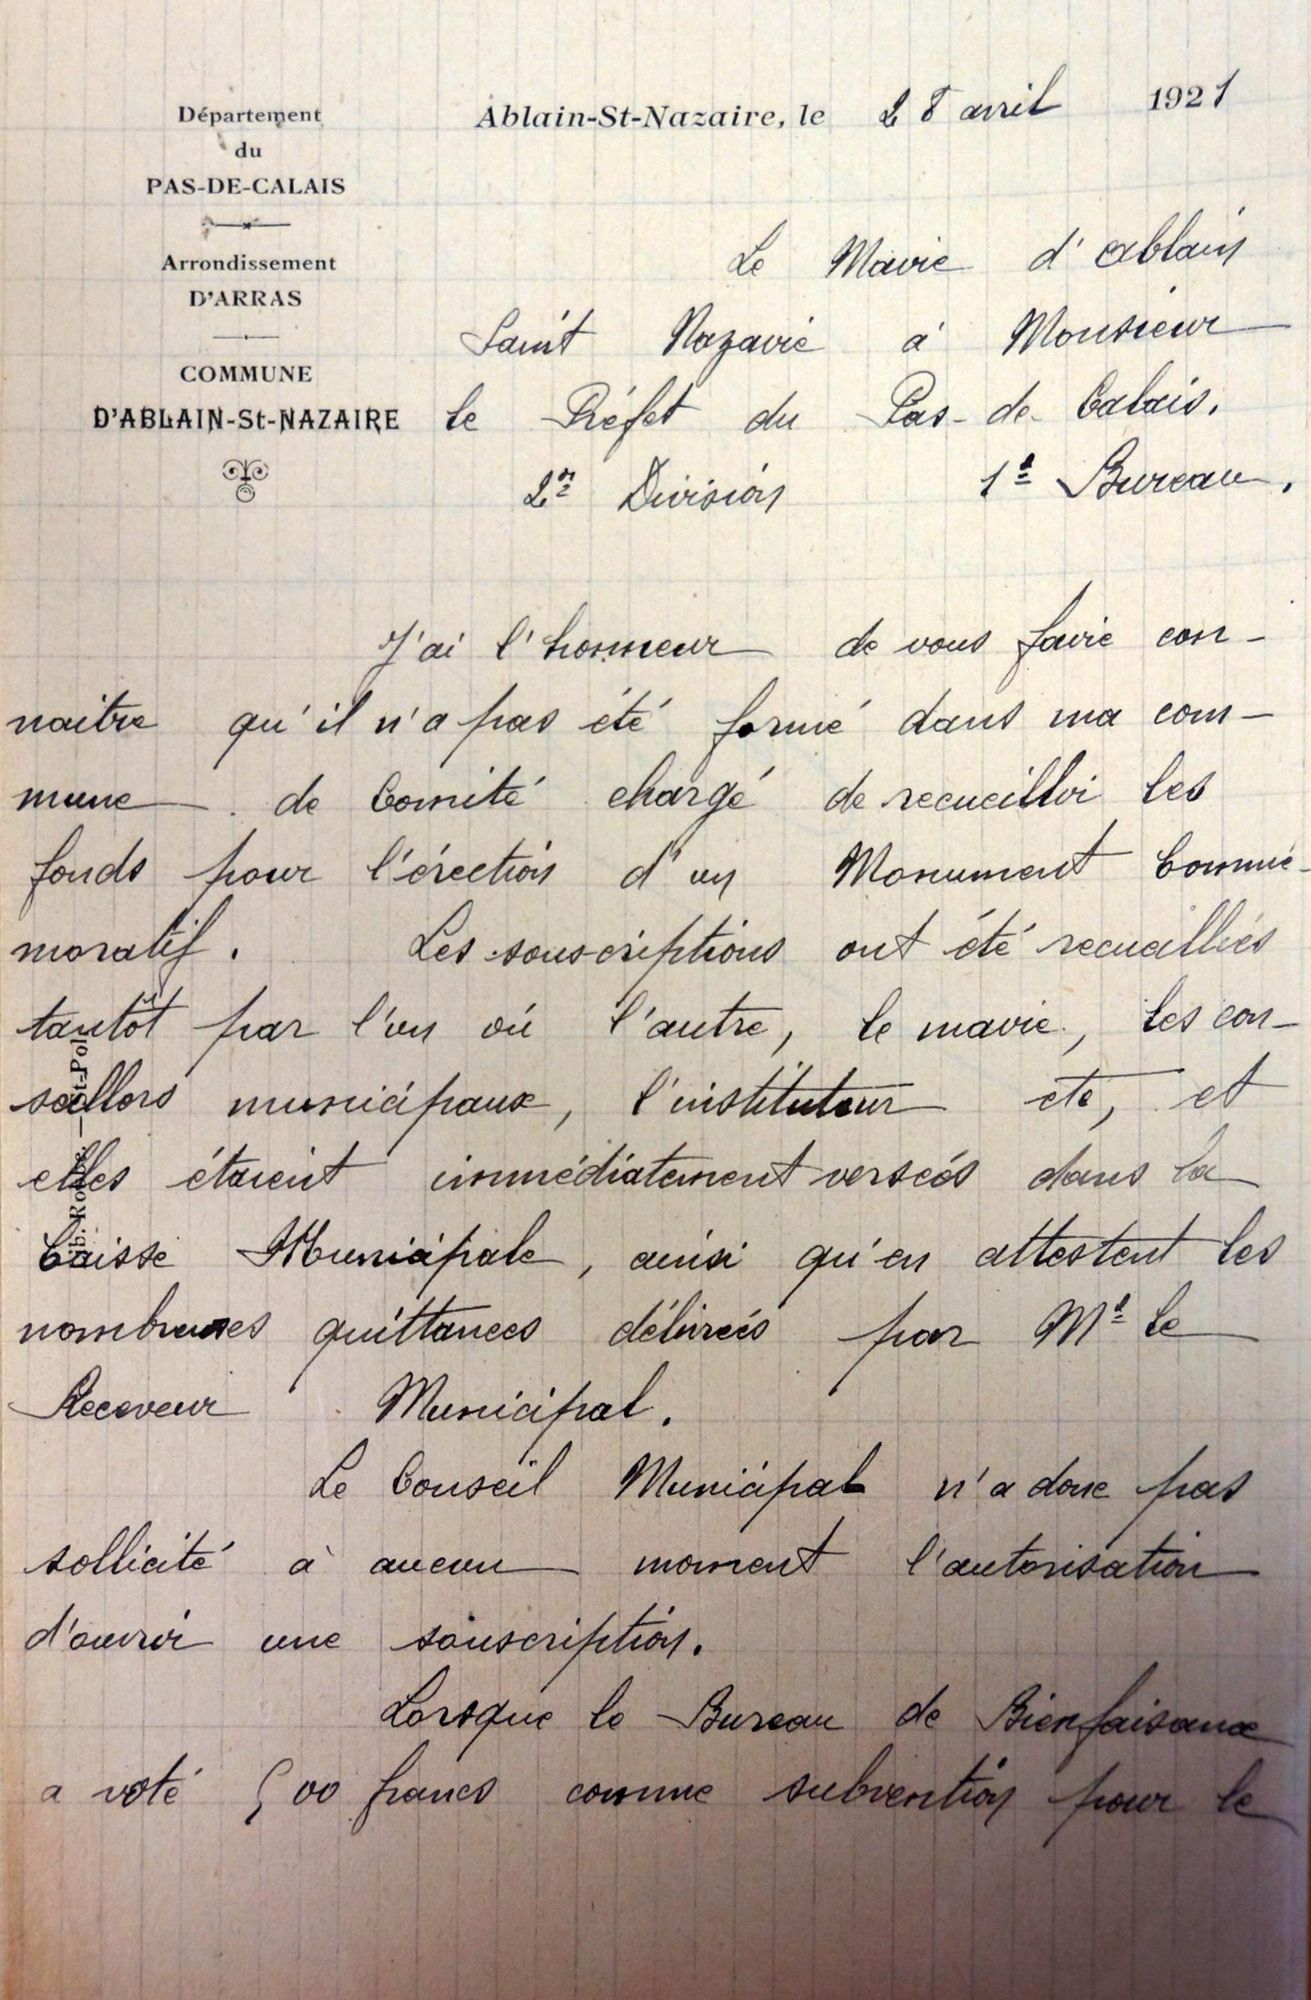 Département
du
PAS-DE-CALAIS
Arrondissement
D'ARRAS
COMMUNE
D'ABLAIN-St-NAZAIRE
Ablain-St-Nazaire, le 28 avril 1921
Le Maire d'Ablain
Saint Nazaire à Monsieur
le Préfet du Pas-de-Calais.
2e Division 1er Bureau.
J'ai l'honneur de vous faire con-
naitre qu'il n'a pas été formé dans ma com-
mune de Comité chargé de recueillir les
fonds pour l'érection d'un Monument Commé-
moratif. Les souscriptions ont été recueillies
tantôt par l'un ou l'autre, le maire, les con-
seillers municipaux, l'instituteur etc, et
elles étaient immédiatement versées dans la
Caisse Municipale, ainsi qu'en attestent les
nombreuses quittances délivrées par Mr le
Receveur Municipal.
Le Conseil Municipal n'a donc pas
sollicité à aucun moment l'autorisation
d'ouvrir une souscription.
Lorsque le Bureau de Bienfaisance
a voté 500 francs comme subvention pour le